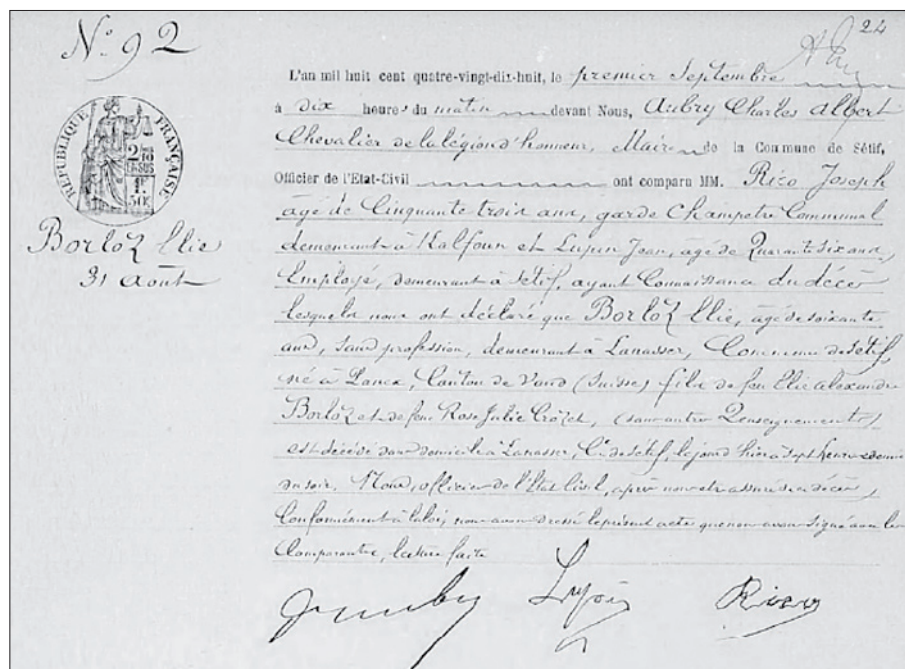 N° 92
24
L'an mil huit cent quatre-vingt-dix-huit, le premier Septembre
à dix heures du matin devant Nous, Aubry Charles Albert
Chevalier de la légion d'honneur, Maire de la Commune de Sétif,
Officier de l'Etat-Civil ont comparu MM. Rico Joseph
âgé de Cinquante trois ans, garde Champetre Communal
demeurant à Kalfoun et Lupin Jean, âgé de Quarante six ans,
Employé, demeurant à Sétif, ayant Connaissance du décès
lesquels nous ont déclaré que Borloz Elie, âgé de soixante
ans, sans profession, demeurant à Lanasser, Commune de Sétif,
né à Canton de Vaud (Suisse) fils de feu Elie Alexandre
Borloz et de feue Rose Julie Crozet, (sans autres Renseignements)
est décédé son domicile à Lanasser, Cne de Sétif, le jour d'hier à sept heures demie
du soir. Nous, officier de l'Etat Civil, après nous être assuré du décès,
Conformément à la loi, nous avons dressé le présent acte que nous avons signé avec les
Comparants, lecture faite
RÉPUBLIQUE FRANÇAISE
Borloz Elie
31 août
Aubry Lupin Rico